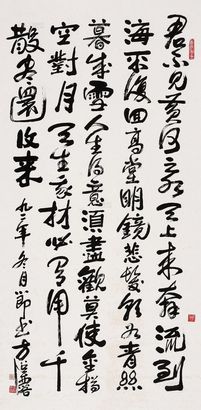 君不見黃河之水天上來奔流到
海不復回高堂明鏡悲髮朝如青絲
暮成雪人生得意須盡歡莫使金樽
空對月天生我材必有用千
散盡還復來 九三年冬月節書方